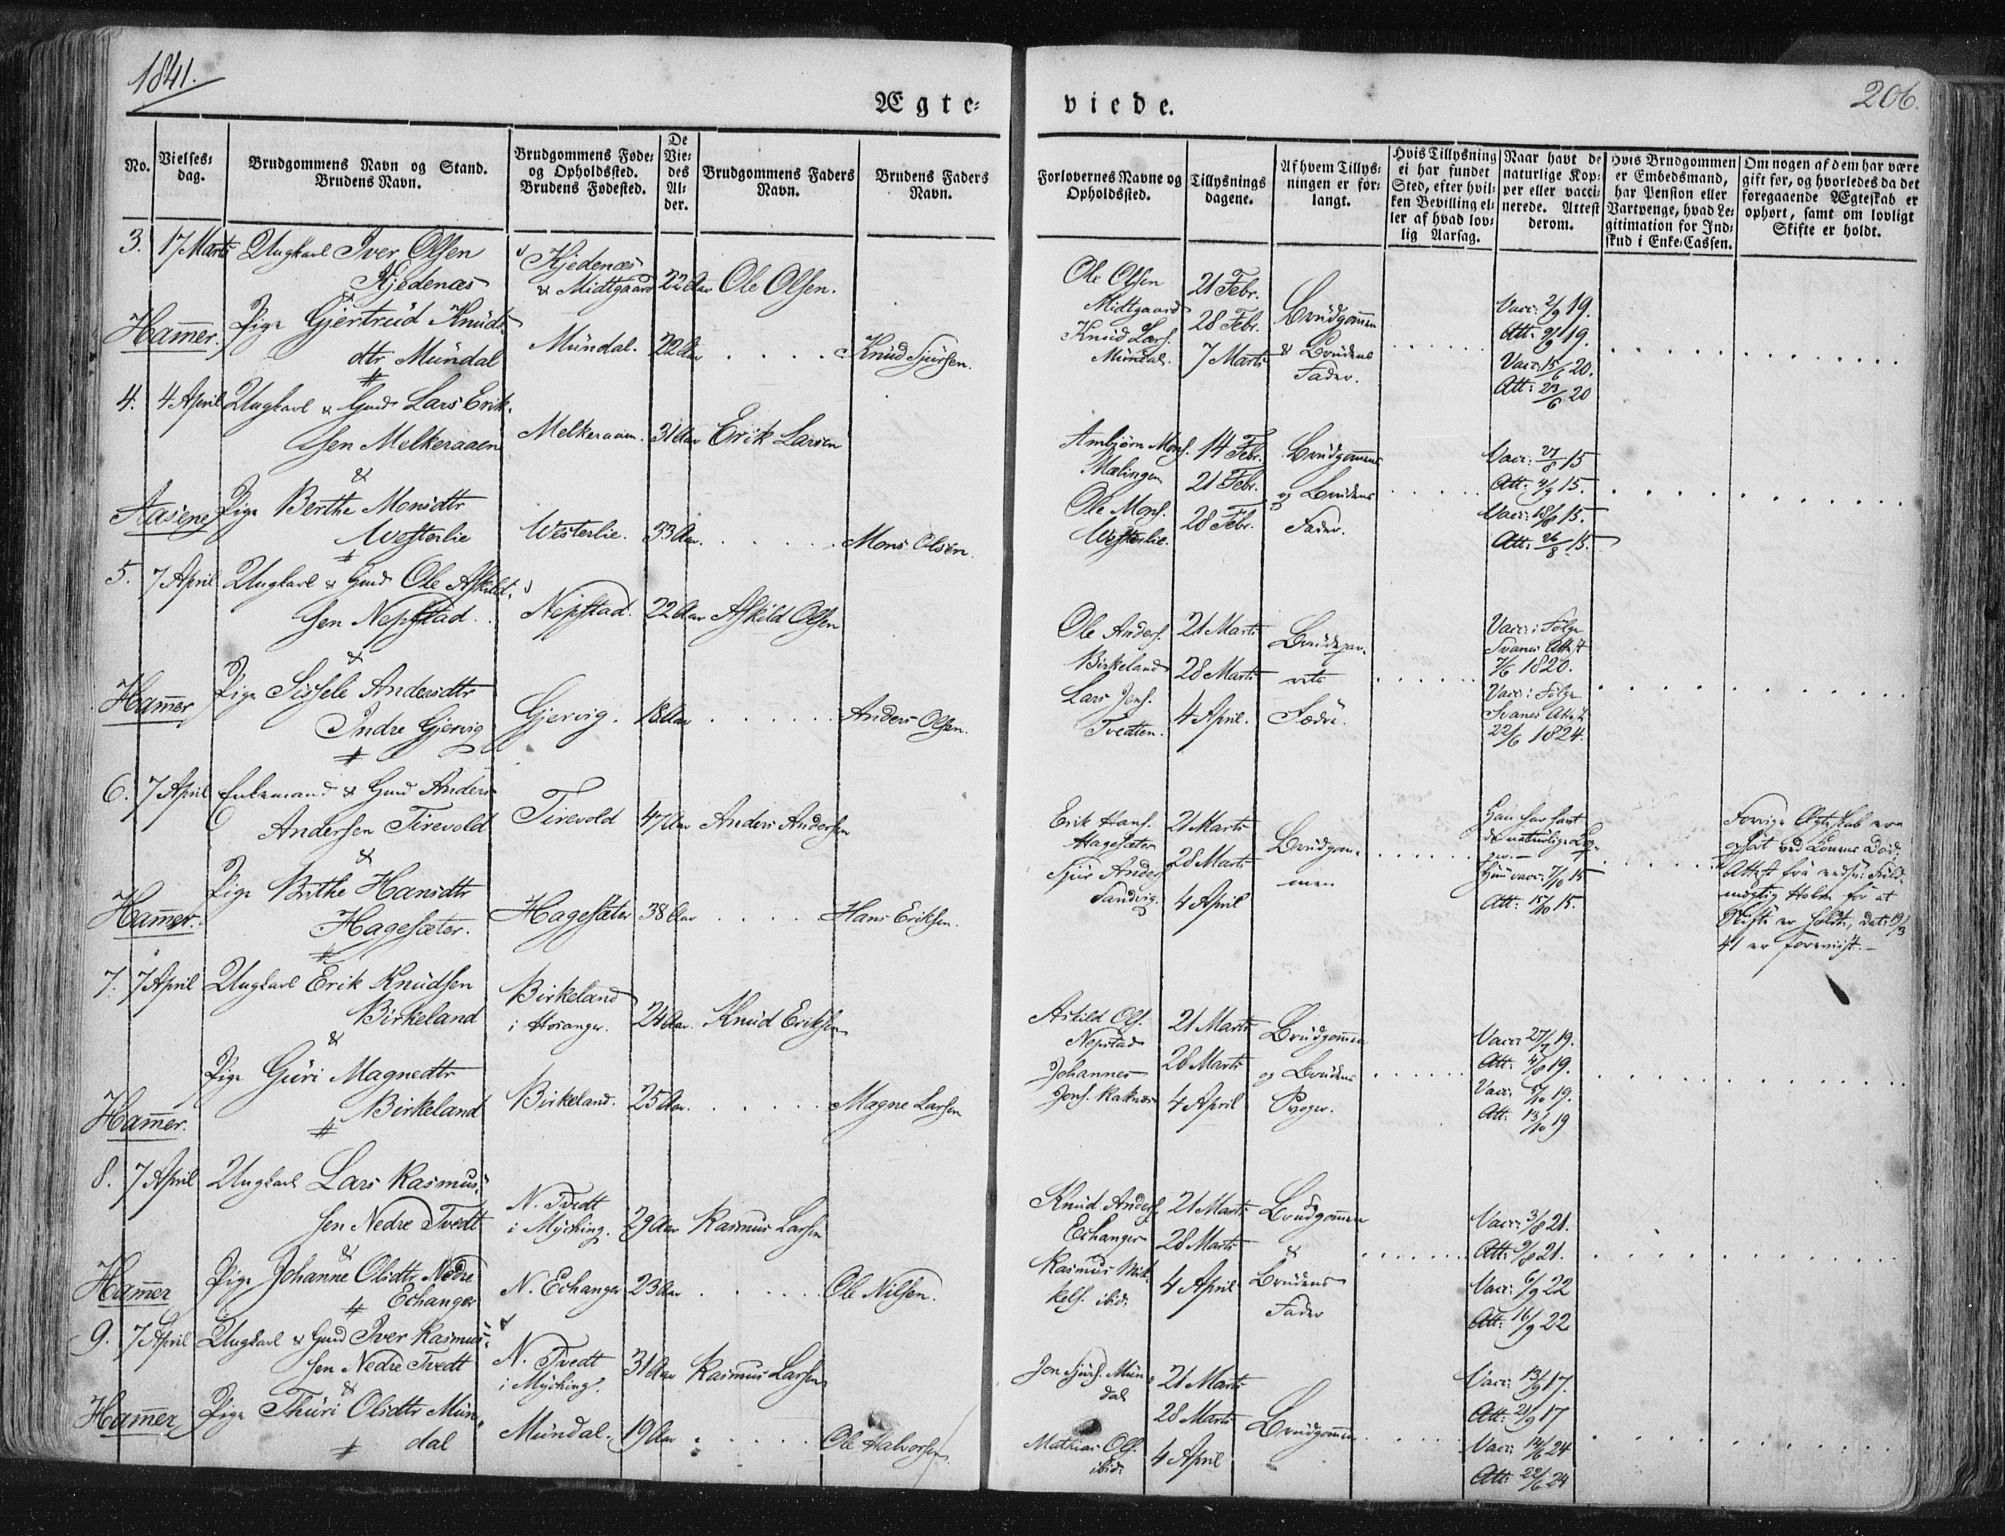 1841.
Ægte-
viede.
206.
No.
Vielses-
dag.
Brudgommens Navn og Stand.
Brudens Navn.
Brudgommens Føde-
og Opholdssted.
Brudens Fødested.
De
Vie-
des
Al-
der.
Brudgommens Faders
Navn.
Brudens Faders
Navn.
Forlovernes Navne og
Opholdssted.
Tillysnings
dagene.
Af hvem Tillys-
ningen er for-
langt.
Hvis Tillysning
ei har fundet
Sted, efter hvil-
ken Bevilling el-
ler af hvad lov-
lig Aarsag.
Naar havt de
naturlige Kop-
per eller vacci-
nerede. Attest
derom.
Hvis Brudgommen
er Embedsmand,
har Pension eller
Vartpenge, hvad Le-
gitimation for Ind-
skud i Enke-Cassen.
Om nogen af dem har være
gift før, og hvorledes da det
foregaaende Ægteskab er
ophørt, samt om lovligt
Skifte er holdt.
3. 17 Marts Ungkarl Iver Olsen
Kjedenæs
Kjedenæs
& Midtgaard 22 Aar Ole Olsen.
&
Hammer. Pige Gjertrud Knuds-
dtr Mundal
Mundal. 22 Aar Knud Sjursen.
Ole Olsen
Midtgaard
Knud Lars.
Mundal.
21 Febr.
28 Febr.
7 Marts
Brudgommen
& Brudens
Fader.
Vacc: 2/9 19.
Att: 9/9 19.
Vacc: 15/6 20.
Att: 23/6 20
4. 4 April Ungkarl & Gmd Lars Erik-
sen Melkeraaen
Melkeraaen. 31 Aar Erik Larsen
&
Aasene Pige Berthe Monsdtr
Westerlie
Westerlie. 33 Aar. Mons Olsen.
Ambjørn Mons.
Mælingen
Ole Mons.
Westerlie.
14 Febr.
21 Febr.
28 Febr.
Brudgommens
og Brudens
Fader.
Vacc: 27/8 15
Att: 4/9 15.
Vacc: 18/8 15.
Att: 26/8 15.
5. 7 April Ungkarl & Gmd Ole Askild-
sen Nepstad.
Nepstad. 22 Aar Askild Olsen
&
Hammer Pige Sissele Andersdtr
Indre Gjervig
Gjervig. 18 Aar Anders Olsen.
Ole Anders.
Birkeland
Lars Jens.
Tvedten.
21 Marts
28 Marts
4 April.
Brudepar-
rets
Fædre.
Vacc: i Følge
Svanes Attest
7/6 1820.
Vacc: i Følge
Svanes Attest
22/6 1824.
6. 7 April Enkemand & Gmd Anders
Andersen Tirevold
Tirevold 47 Aar Anders Andersen
&
Hammer. Pige Brithe Hansdtr
Hagesæter.
Hagesæter 38 Aar Hans Eriksen.
Erik Hans.
Hagesæter
Sjur Anders.
Sandvig.
21 Marts
28 Marts
4 April
Brudgom-
men
Han har havt
de naturlige Kop-
per.—
Hun vacc: 7/10 15
Att: 15/10 15.
Forrige Ægteskab er
ophørt ved Konens Død.
Attest fra Fuld-
mægtig Holm for at
Skifte er holdt, dat: 19/3
41 er foreviist.—
7. 7 April Ungkarl Erik Knudsen
Birkeland
Birkeland
i Hosanger. 24 Aar. Knud Eriksen
&
Pige Guri Magnedtr
Hammer. Birkeland
Birkeland. 25 Aar. Magne Larsen
Askild Ols.
Nepstad
Johannes
Jons. Raknæs
21 Marts
28 Marts
4 April
Brudgommen
og Brudens
Svoger.
Vacc: 27/7 19.
Att: 4/8 19.
Vacc: 5/10 19.
Att: 13/10 19
8. 7 April Ungkarl Lars Rasmus-
sen Nedre Tvedt
N. Tvedt
i Mycking. 29 Aar Rasmus Larsen
&
Hammer Pige Johanne Olsdtr Nedre
Echanger
N. Echanger 23 Aar Ole Nilsen.
Knud Anders.
Echanger
Rasmus Mik-
kels. ibid:
21 Marts
28 Marts
4 April
Brudgommen
&
Brudens
Fader
Vacc: 3/8 21.
Att: 9/8 21.
Vacc: 6/9 22
Att: 16/9 22
9. 7 April Ungkarl & Gmd Iver Rasmus-
sen Nedre Tvedt
N. Tvedt
i Mycking. 31 Aar Rasmus Larsen
&
Hammer Pige Thuri Olsdtr Mun-
dal
Mundal. 19 Aar Ole Halvorsen
Jon Sjurs. Mun-
dal
Mathias Ols.
ibid:
21 Marts
28 Marts
4 April
Brudgommen
Vacc: 13/9 17.
Att: 21/9 17
Vacc: 14/6 24
Att: 22/6 24